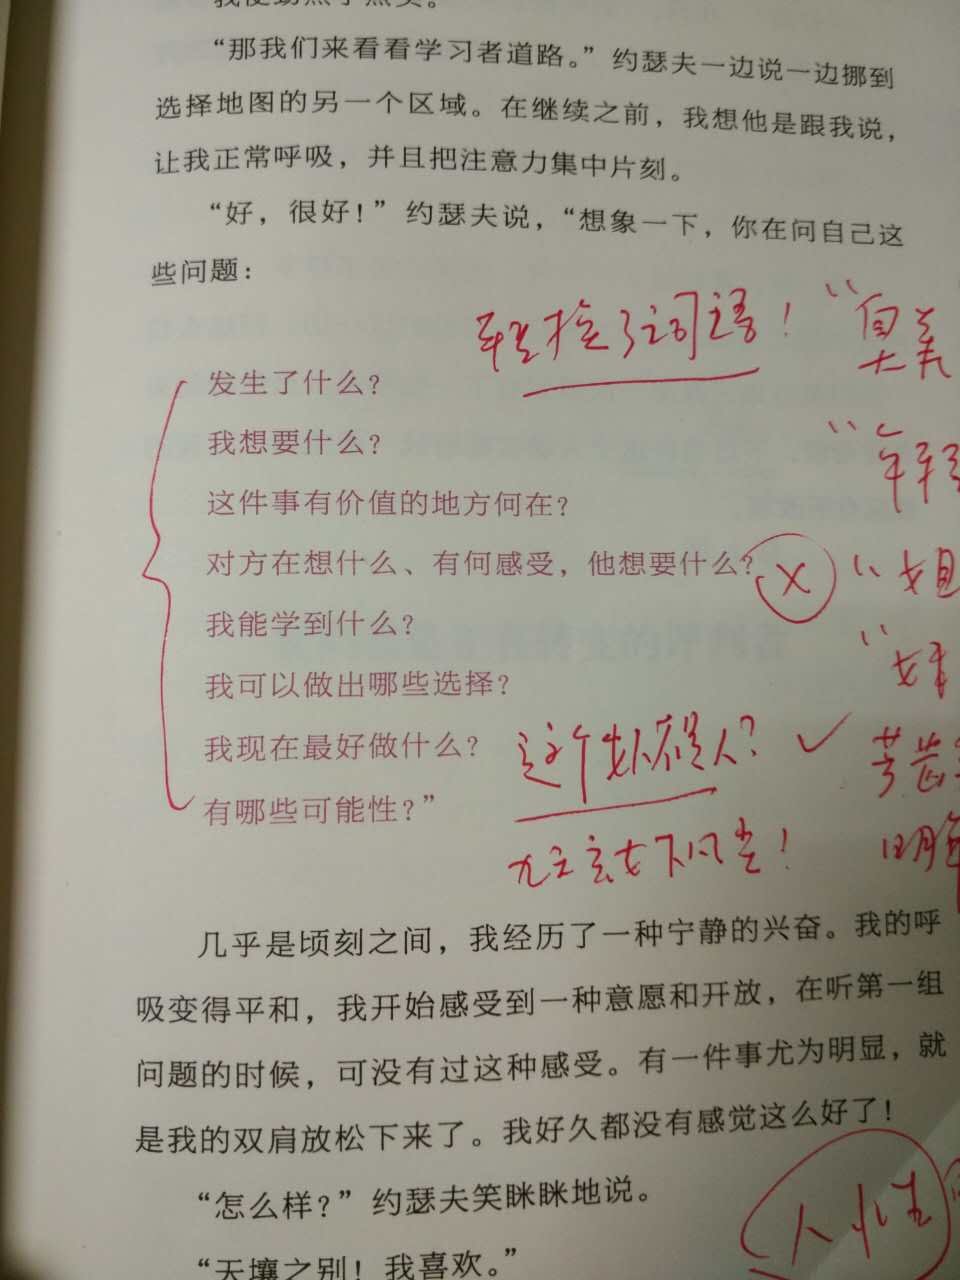 “那我们来看看学习者道路。”约瑟夫一边说一边挪到
选择地图的另一个区域。在继续之前，我想他是跟我说，
让我正常呼吸，并且把注意力集中片刻。
“好，很好！”约瑟夫说，“想象一下，你在问自己这
些问题：
换了词语！
发生了什么？
我想要什么？
这件事有价值的地方何在？
对方在想什么、有何感受，他想要什么？
我能学到什么？
我可以做出哪些选择？
我现在最好做什么？
这个 人？
有哪些可能性？”
几乎是顷刻之间，我经历了一种宁静的兴奋。我的呼
吸变得平和，我开始感受到一种意愿和开放，在听第一组
问题的时候，可没有过这种感受。有一件事尤为明显，就
是我的双肩放松下来了。我好久都没有感觉这么好了！
“怎么样？”约瑟夫笑眯眯地说。
人性
“天壤之别！我喜欢。”